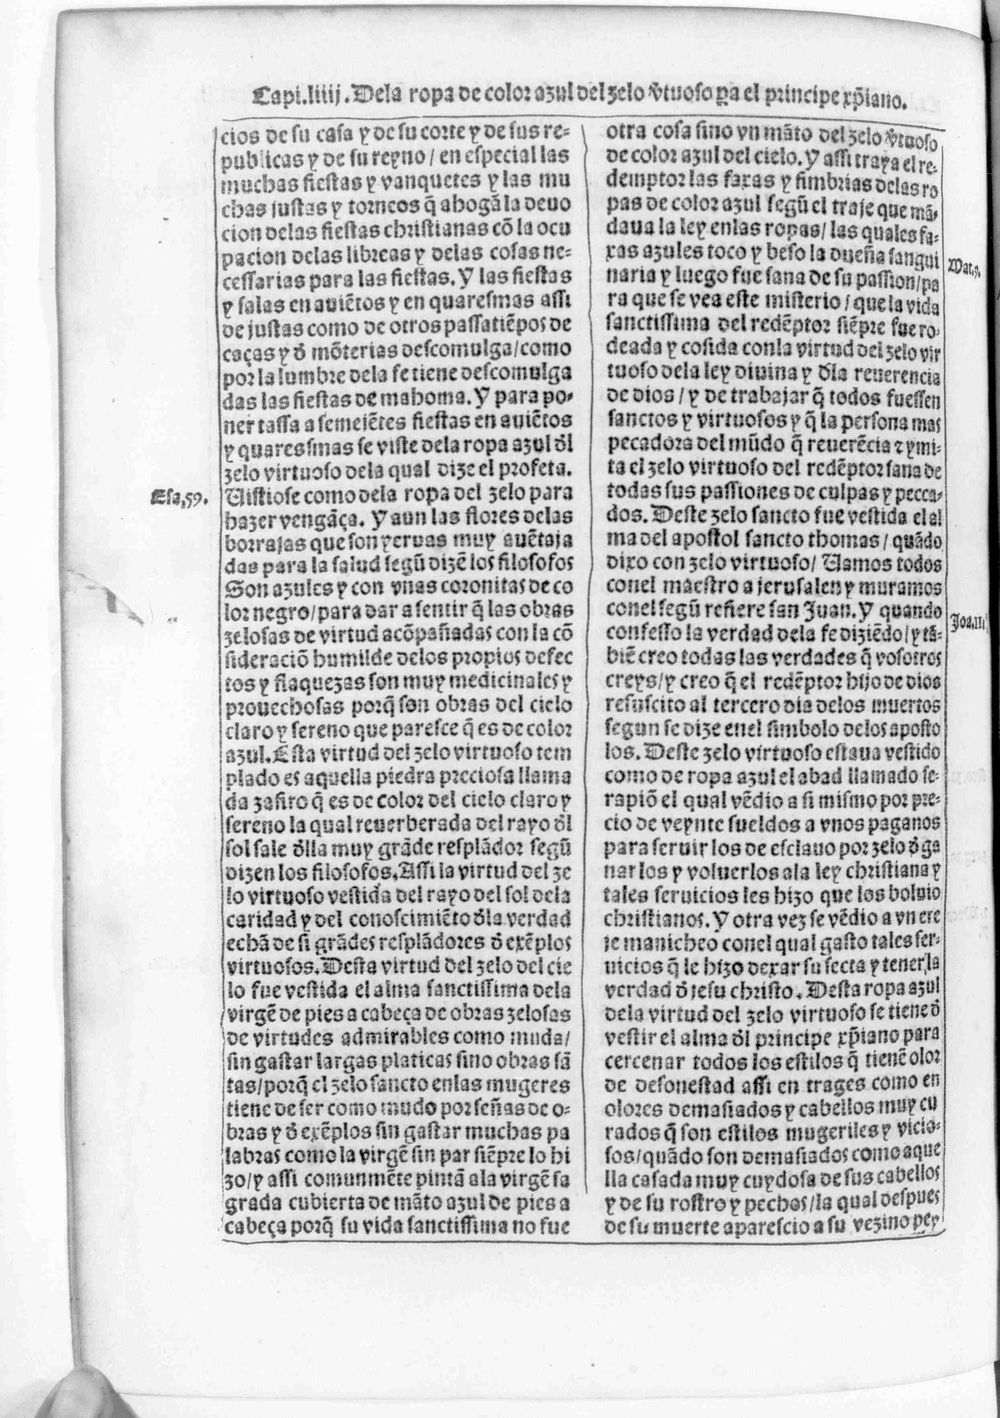 Capi.iiij. Dela ropa de color azul del zelo v̄tuoso p̱a el principe xp̄iano.
cios de su casa y de su corte y de sus re-
publicas y de su reyno / en especial las
muchas fiestas y vanquetes y las mu
chas justas y torneos q̄ abogā la deuo
cion delas fiestas christianas cō la ocu
pacion delas libreas y delas cosas ne-
cessarias para las fiestas. Y las fiestas
y salas en auiētos y en quaresmas assi
de justas como de otros passatiēpos de
caças y d̄ mōterias descomulga / como
por la lumbre dela fe tiene descomulga
das las fiestas de mahoma. Y para po-
ner tassa a semejētes fiestas en auiētos
y quaressmas se viste dela ropa azul d̄l
zelo virtuoso dela qual dize el profeta.
Esa,59.
Uistiose como dela ropa del zelo para
hazer vengāça. Y aun las flores delas
borrajas que son yeruas muy auētaja
das para la salud segū dizē los filosofos
Son azules y con vnas coronitas de co
lor negro / para dar a sentir q̄ las obras
zelosas de virtud acōpañadas con la cō
sideraciō humilde delos propios defec
tos y flaquezas son muy medicinales y
prouechosas porq̄ son obras del cielo
claro y sereno que paresce q̄ es de color
azul. Esta virtud del zelo virtuoso tem
plado es aquella piedra preciosa llama
da zafiro q̄ es de color del cielo claro y
sereno la qual reuerberada del rayo d̄l
sol sale d̄lla muy grāde resplādor segū
dizen los filosofos. Assi la virtud del ze
lo virtuoso vestida del rayo del sol dela
caridad y del conoscimiēto d̄la verdad
echā de si grādes resplādores d̄ exēplos
virtuosos. Desta virtud del zelo del cie
lo fue vestida el alma sanctissima dela
virgē de pies a cabeça de obras zelosas
de virtudes admirables como muda /
sin gastar largas platicas sino obras sā
tas / porq̄ el zelo sancto enlas mugeres
tiene de ser como mudo por señas de o-
bras y d̄ exēplos sin gastar muchas pa
labras como la virgē sin par siēpre lo hi
zo / y assi comunmēte pintā ala virgē sa
grada cubierta de māto azul de pies a
cabeça porq̄ su vida sanctissima no fue
otra cosa sino vn māto del zelo v̄tuoso
de color azul del cielo. Y assi traya el re-
demptor las faxas y fimbrias delas ro
pas de color azul segū el traje que mā-
daua la ley enlas ropas / las quales fa-
xas azules toco y beso la dueña sangui
Mat.9.
naria y luego fue sana de su passion / pa
ra que se vea este misterio / que la vida
sanctissima del redēptor siēpre fue ro-
deada y cosida conla virtud del zelo vir
tuoso dela ley diuina y d̄la reuerencia
de dios / y de trabajar q̄ todos fuessen
sanctos y virtuosos y q̄ la persona mas
pecadora del mūdo q̄ reuerēcia ⁊ ymi-
ta el zelo virtuoso del redēptor sana de
todas sus passiones de culpas y pecca-
dos. Deste zelo sancto fue vestida el al
ma del apostol sancto thomas / quādo
dixo con zelo virtuoso / Uamos todos
conel maestro a jerusalen y muramos
conel segū refiere san Juan. Y quando
Joa.11
confesso la verdad dela fe diziēdo / y tā-
biē creo todas las verdades q̄ vosotros
creys / y creo q̄ el redēptor hijo de dios
resuscito al tercero dia delos muertos
segun se dize enel simbolo delos aposto
los. Deste zelo virtuoso estaua vestido
como de ropa azul el abad llamado se-
rapiō el qual vēdio a si mismo por pre-
cio de veynte sueldos a vnos paganos
para seruir los de esclauo por zelo d̄ ga
nar los y voluerlos ala ley christiana y
tales seruicios les hizo que los boluio
christianos. Y otra vez se vēdio a vn ere
je manicheo conel qual gasto tales ser-
uicios q̄ le hizo dexar su secta y tener la
verdad d̄ jesu christo. Desta ropa azul
dela virtud del zelo virtuoso se tiene d̄
vestir el alma d̄l principe xp̄iano para
cercenar todos los estilos q̄ tienē olor
de desonestad assi en trages como en
olores demasiados y cabellos muy cu
rados q̄ son estilos mugeriles y vicio-
sos / quādo son demasiados como aque
lla casada muy cuydosa de sus cabellos
y de su rostro y pechos / la qual despues
de su muerte aparescio a su vezino pey